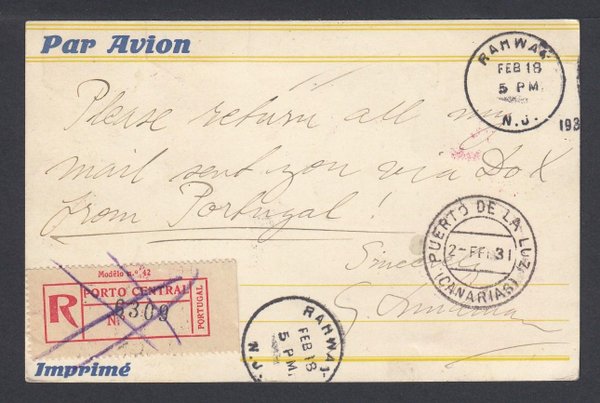 Par Avion
RAHWAY
FEB 18
5 PM.
N.J.
193
Please return all my
mail sent you via Do X
from Portugal!
PUERTO DE LA LUZ
2-FEB.31
(CANARIAS)
Modêlo n.º 42
R
PORTO CENTRAL
PORTUGAL
N.º 8309
RAHWAY
FEB 18
5 PM.
N.J.
Imprimé